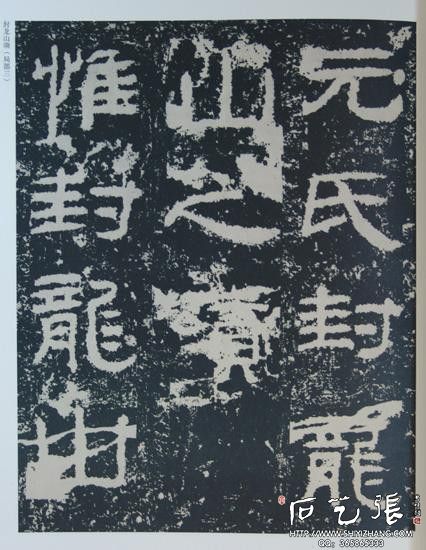 元氏封龍
山之頌
惟封龍山
封龙山颂（局部三）
石艺張
HTTP://WWW.SHIYIZHANG.COM
QQ: 365865333